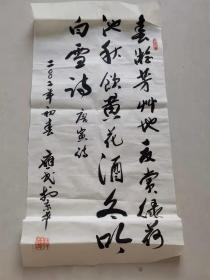 春游芳草地夏赏绿荷
池秋饮黄花酒冬吟
白雪诗
二〇〇二年初春